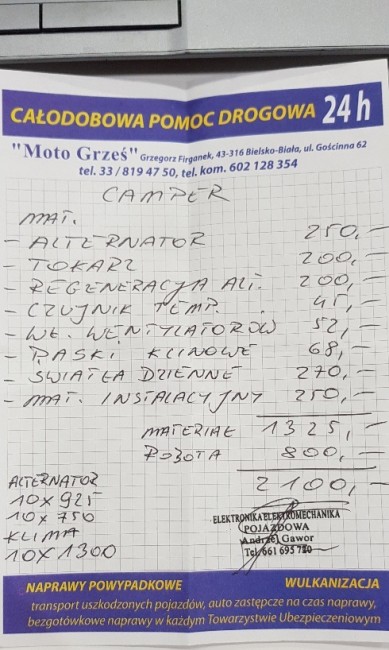 CAŁODOBOWA POMOC DROGOWA 24 h
"Moto Grześ" Grzegorz Firganek, 43-316 Bielsko-Biała, ul. Gościnna 62
tel. 33 / 819 47 50, tel. kom. 602 128 354
CAMPER
MAT.
- ALTERNATOR 250,-
- TOKARZ 200,-
- REGENERACJA ALT. 200,-
- CZUJNIK TEMP. 45,-
- WŁ. WENTYLATORÓW 52,-
- PASKI KLINOWE 68,-
- ŚWIATŁA DZIENNE 270,-
- MAT. INSTALACYJNY 250,-
MATERIAŁ 1325,-
ROBOTA 800,-
2100,-
ALTERNATOR
10 X 925
10 X 750
KLIMA
10 X 1300
ELEKTRONIKA ELEKTROMECHANIKA
POJAZDOWA
Andrzej Gawor
Tel. 661 695
NAPRAWY POWYPADKOWE WULKANIZACJA
transport uszkodzonych pojazdów, auto zastępcze na czas naprawy,
bezgotówkowe naprawy w każdym Towarzystwie Ubezpieczeniowym